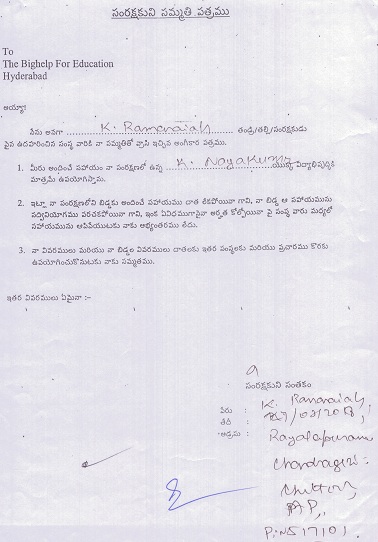 సంరక్షకుని సమ్మతి పత్రము
To
The Bighelp For Education
Hyderabad
అయ్యా!
నేను అనగా K. Ramanaiah తండ్రి/తల్లి/సంరక్షకుడు
పైన ఉదహరించిన సంస్థ వారికి నా సమ్మతితో వ్రాసి ఇచ్చిన అంగీకార పత్రము.
1. మీరు అందించే సహాయం నా సంరక్షణలో ఉన్న K. Nagakumar యొక్క విద్యాభివృద్ధికి
మాత్రమే ఉపయోగిస్తాను.
2. ఇట్లూ నా సంరక్షణలోని బిడ్డకు అందించే సహాయము దాత లేకపోయినా గాని, నా బిడ్డ ఆ సహాయమును
సద్వినియోగము పరచకపోయినా గాని, ఇంక ఏవిధముగానైనా అర్హత కోల్పోయినా పై సంస్థ వారు మధ్యలో
సహాయమును ఆపివేయుటకు నాకు అభ్యంతరము లేదు.
3. నా వివరములు మరియు నా బిడ్డల వివరములు దాతలకు ఇతర సంస్థలకు మరియు ప్రచారము కొరకు
ఉపయోగించుకొనుటకు నాకు సమ్మతము.
ఇతర వివరములు ఏమైనా :-
సంరక్షకుని సంతకం
పేరు : K. Ramanaiah,
తేదీ :
అడ్రసు : Rayalapuram
Chandragiri
Chittoor,
AP,
Pin 517101.